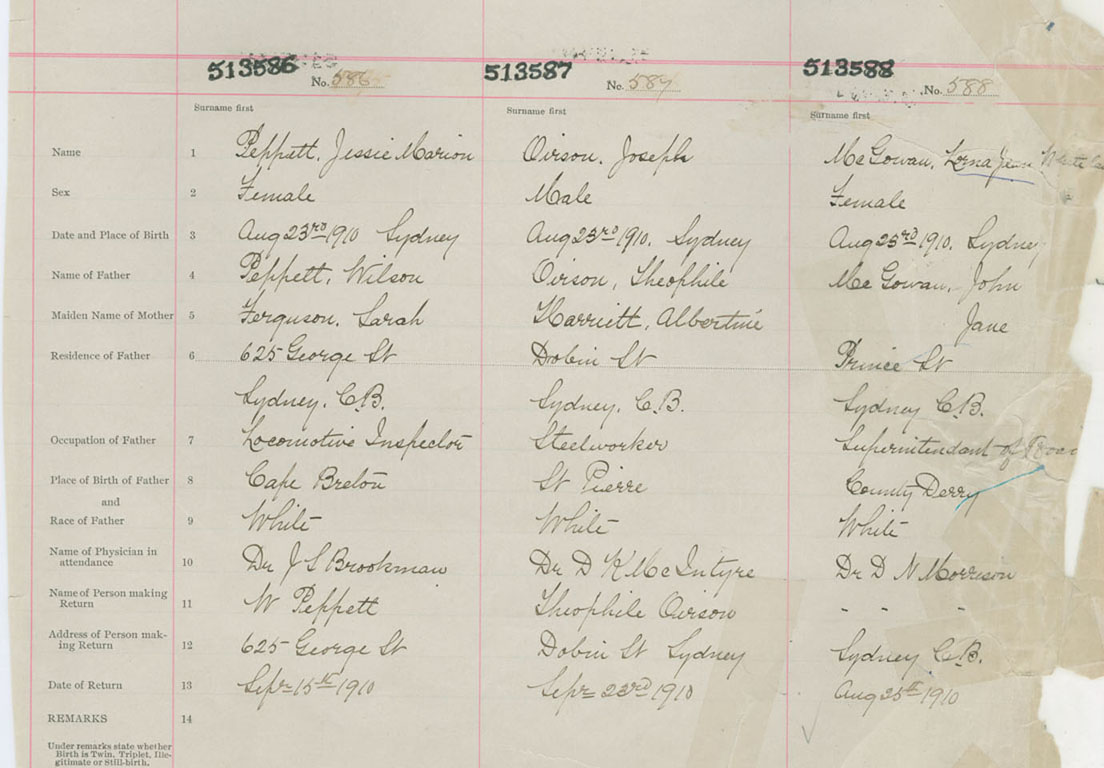 513586 513587 513588
No. 586 No. 587 No. 588
Surname first Surname first Surname first
Name 1 Peppett, Jessie Marion Oirson, Joseph McGowan, Lorna Jean
Sex 2 Female Male Female
Date and Place of Birth 3 Aug 23rd 1910 Sydney Aug 23rd 1910. Sydney Aug 23rd 1910, Sydney
Name of Father 4 Peppett, Wilson Oirson, Theophile McGowan, John
Maiden Name of Mother 5 Ferguson, Sarah Harriett, Albertine Jane
Residence of Father 6 625 George St Dobin St Prince St
Sydney, C.B. Sydney, C.B. Sydney C.B.
Occupation of Father 7 Locomotive Inspector Steelworker Superintendant of
Place of Birth of Father 8 Cape Breton St Pierre County Derry
and
Race of Father 9 White White White
Name of Physician in
attendance 10 Dr J S Brookman Dr D K McIntyre Dr D N Morrison
Name of Person making
Return 11 W Peppett Theophile Oirson - - -
Address of Person mak-
ing Return 12 625 George St Dobin St Sydney Sydney C.B.
Date of Return 13 Sept 15th 1910 Sept 23rd 1910 Aug 25th 1910
REMARKS 14
Under remarks state whether
Birth is Twin, Triplet, Ille-
gitimate or Still-birth.